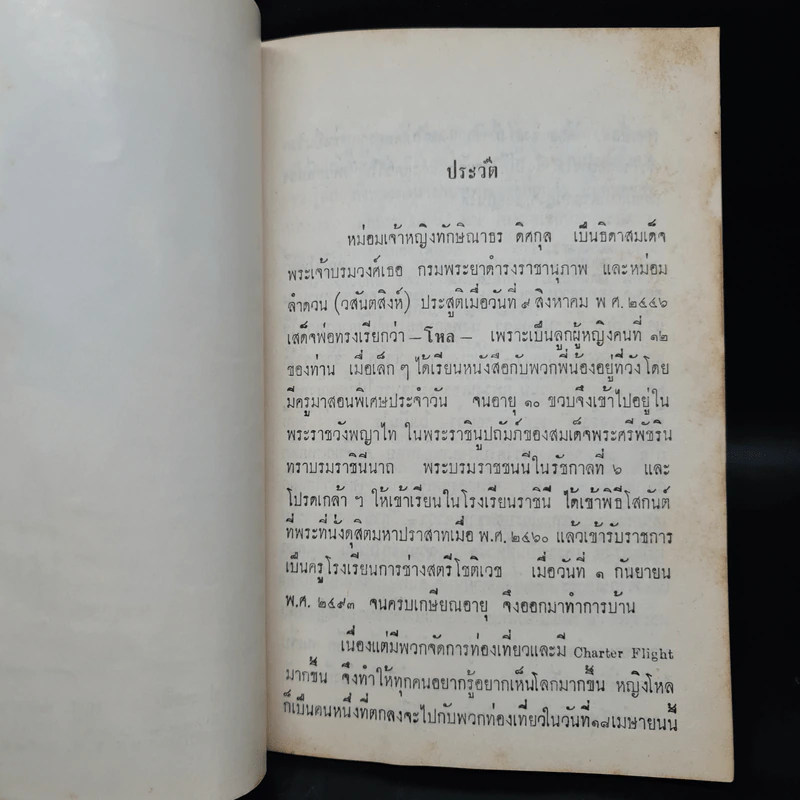 ประวัติ
หม่อมเจ้าหญิงทักษิณาธร ดิศกุล เป็นธิดาสมเด็จ
พระเจ้าบรมวงศ์เธอ กรมพระยาดำรงราชานุภาพ และหม่อม
ลำดวน (วสันตสิงห์) ประสูติเมื่อวันที่ ๙ สิงหาคม พ ศ. ๒๔๔๖
เสด็จพ่อทรงเรียกว่า – โหล – เพราะเป็นลูกผู้หญิงคนที่ ๑๒
ของท่าน เมื่อเล็ก ๆ ได้เรียนหนังสือกับพวกพี่น้องอยู่ที่วัง โดย
มีครูมาสอนพิเศษประจำวัน จนอายุ ๑๐ ขวบจึงเข้าไปอยู่ใน
พระราชวังพญาไท ในพระราชินูปถัมภ์ของสมเด็จพระศรีพัชริน
ทราบรมราชินีนาถ พระบรมราชชนนีในรัชกาลที่ ๖ และ
โปรดเกล้า ฯ ให้เข้าเรียนในโรงเรียนราชินี ได้เข้าพิธีโสกันต์
ที่พระที่นั่งดุสิตมหาปราสาทเมื่อ พ.ศ. ๒๔๖๐ แล้วเข้ารับราชการ
เป็นครูโรงเรียนการช่างสตรีโชติเวช เมื่อวันที่ ๑ กันยายน
พ.ศ. ๒๔๙๓ จนครบเกษียณอายุ จึงออกมาทำการบ้าน
เนื่องแต่มีพวกจัดการท่องเที่ยวและมี Charter Flight
มากขึ้น จึงทำให้ทุกคนอยากรู้อยากเห็นโลกมากขึ้น หญิงโหล
ก็เป็นคนหนึ่งที่ตกลงจะไปกับพวกท่องเที่ยวในวันที่ ๑๘ เมษายนนี้